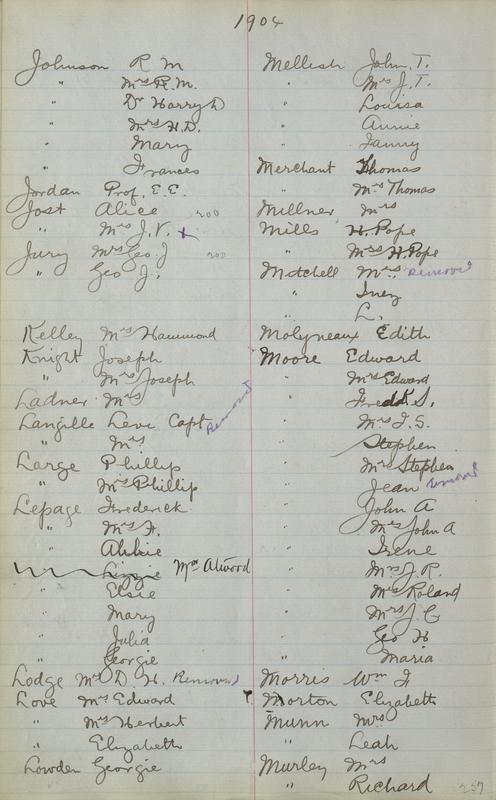 1904
Johnson R M
" Mrs R. M.
" Dr Harry D
" Mrs H. D.
" Mary
" Frances
Jordan Prof. E. E.
Jost Alice 200
" Mrs J. V. x
Jury Mrs Geo. J 200
" Geo J.
Kelley Mrs Hammond
Knight Joseph
" Mrs Joseph
Ladner Mrs
Langille Levi Capt Removed
" Mrs
Large Phillip
" Mrs Phillip
Lepage Frederick
" Mrs F.
" Abbie
" Lizzie Mrs Atwood
" Elsie
" Mary
" Julia
" Georgie
Lodge Mrs D. H. Removed
Love Mrs Edward
" Mrs Herbert
" Elizabeth
Lowden Georgie
Mellish John. T.
" Mrs J. T.
" Louisa
" Annie
" Fanny
Merchant Thomas
" Mrs Thomas
Millner Mrs
Mills H. Pope
" Mrs H. Pope
Mitchell Mrs. Removed
" Inez
" L.
Molyneaux Edith
Moore Edward
" Mrs Edward
" Fredk S.
" Mrs F. S.
" Stephen
" Mrs Stephen
" Jean Removed
" John A
" Mrs John A
" Irene
" Mrs J. R.
" Mrs Roland
" Mrs J. C
" Geo H
" Maria
Morris Wm F
Morton Elizabeth
Munn Mrs
" Leah
Murley Mrs
" Richard
257